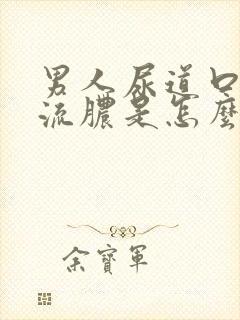 男人尿道口
流膿是怎麼
余寶軍